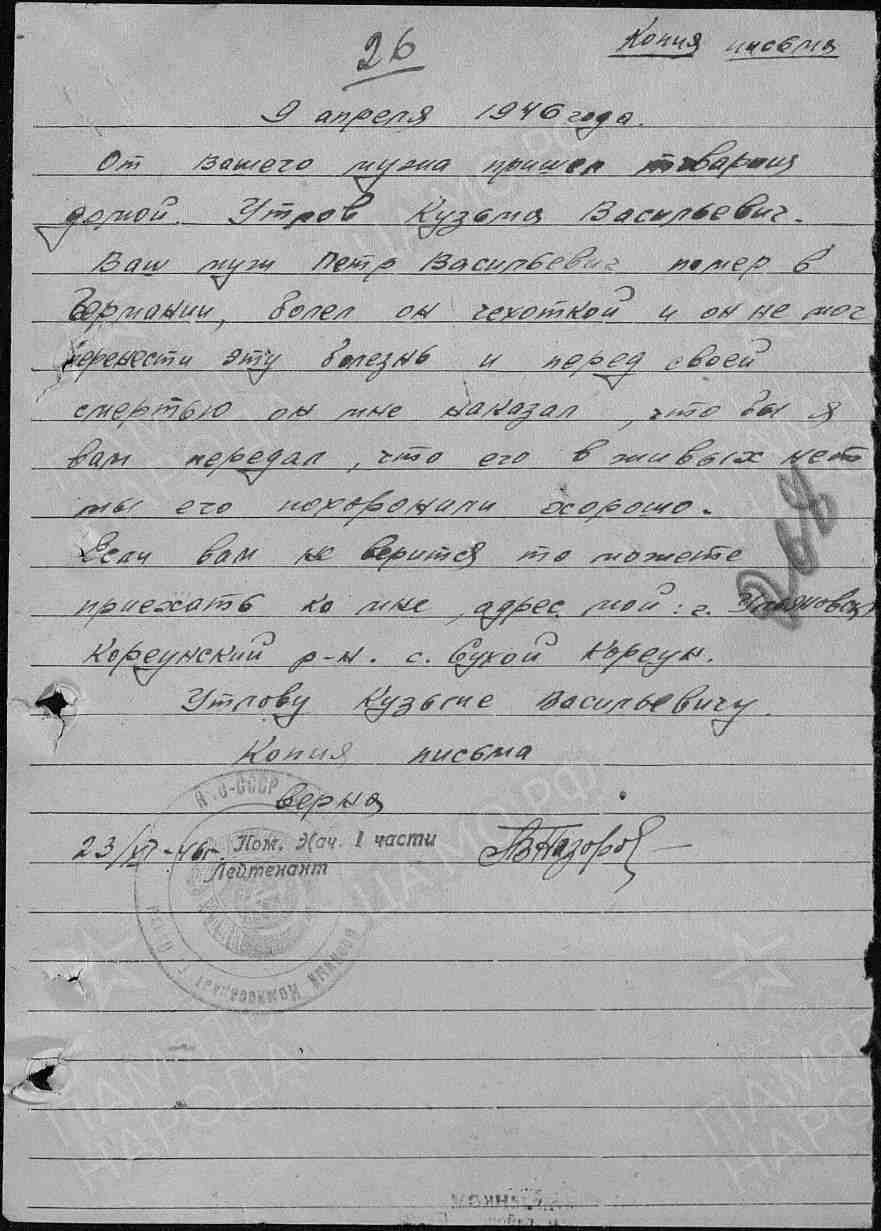 26
Копия письма
9 апреля 1946 года.
От вашего мужа пришел товарищ
домой. Утлов Кузьма Васильевич.
Ваш муж Петр Васильевич помер в
Германии, болел он чехоткой и он не мог
перенести эту болезнь и перед своей
смертью он мне наказал, что бы я
вам передал, что его в живых нет
мы его похоронили хорошо.
Если вам не верится то можете
приехать ко мне, адрес мой: г. Ульяновск
Кореунский р-н. с. Сухой Кореун.
Утлову Кузьме Васильевичу.
Копия письма
верна
23/VI-46г. Пом. Нач. 1 части
Лейтенант
268
ПАМЯТЬ НАРОДА
ЦАМО РФ